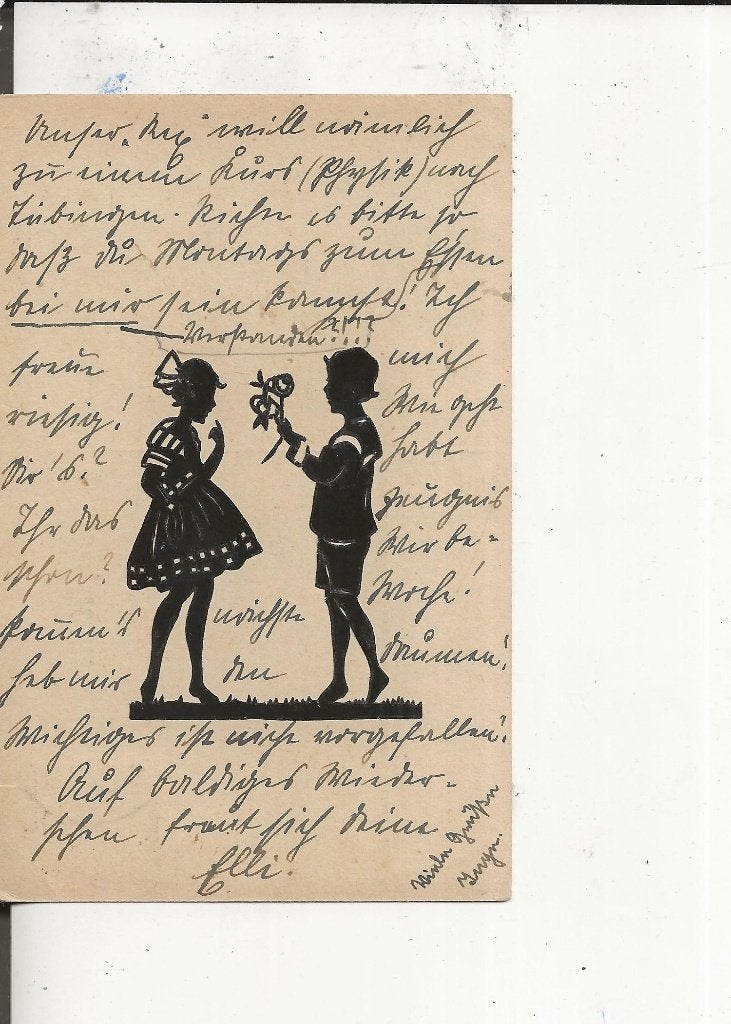 Unser „Rex" will nämlich
zu einem Kurs (Physik) nach
Tübingen. Richte es bitte so
daß du Montags zum Essen
bei mir sein kannst! Ich
Verstanden?!!!?
freue mich
riesig! Wie geht
Dir's? habt
Ihr das Zeugnis
schon? Wir be-
kommen's nächste Woche!
heb mir den Daumen!
Wichtiges ist nicht vorgefallen!
Auf baldiges Wieder-
sehen freut sich deine
Elli.
Viele Grüße
Inge.